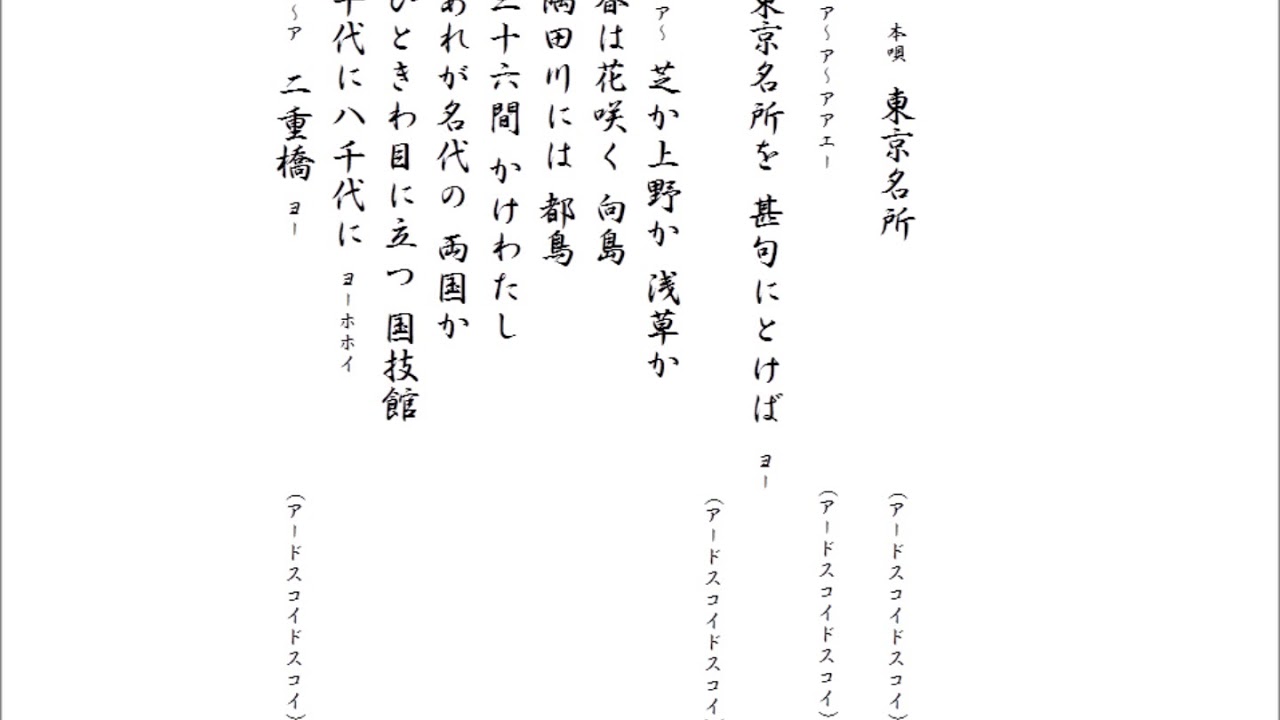 本唄 東京名所
(アードスコイドスコイ)
ア〜ア〜アアエー
(アードスコイドスコイ)
東京名所を 甚句にとけば ヨー
(アードスコイドスコイ
ア〜 芝か上野か 浅草か
春は花咲く 向島
隅田川には 都鳥
十六間 かけわたし
あれが名代の 両国か
ひときわ目に立つ 国技館
千代に八千代に ヨーホホイ
〜ア 二重橋 ヨー
(アードスコイドスコイ)